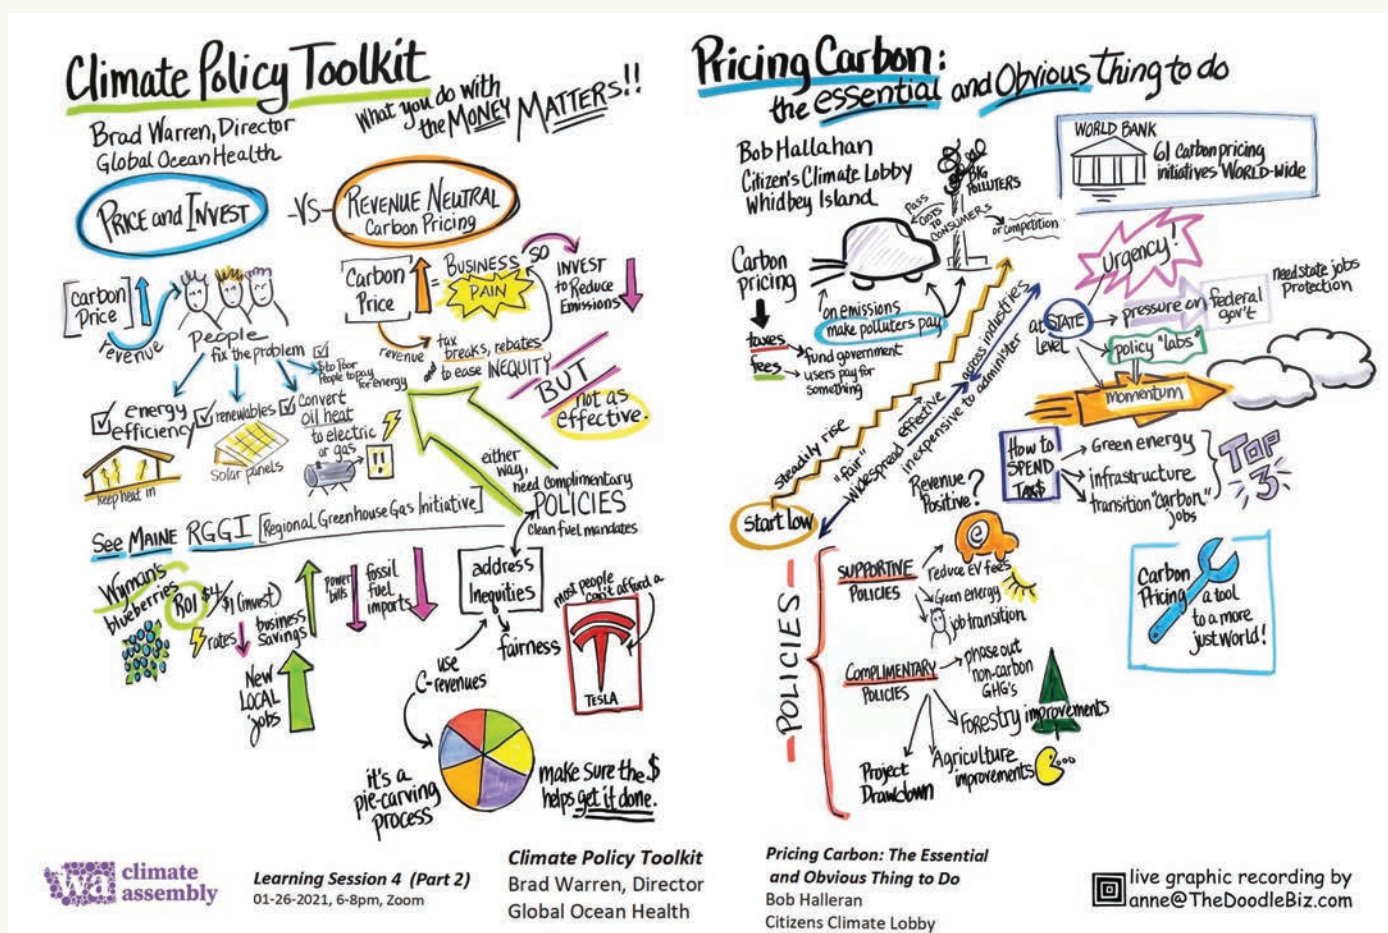 Climate Policy Toolkit
What you do with
the MONEY MATTERS!!
Brad Warren, Director
Global Ocean Health
PRICE and INVEST
-VS-
REVENUE NEUTRAL
Carbon Pricing
[Carbon
Price]
revenue
People
fix the problem
$ to Poor
People to pay
for energy
energy
efficiency
renewables
Convert
oil heat
to electric
or gas
keep heat in
Solar panels
[Carbon
Price]
=
BUSINESS
PAIN
SO
INVEST
to Reduce
Emissions
revenue
tax
breaks, rebates
and to ease INEQUITY
BUT
not as
effective.
either
way,
need complimentary
POLICIES
clean fuel mandates
See MAINE RGGI [Regional Greenhouse Gas Initiative]
Wyman's
blueberries
ROI $4/
$1 (invest)
rates
business
Savings
power
bills
fossil
fuel
imports
New
LOCAL
jobs
address
Inequities
fairness
most people
can't afford a
TESLA
use
C-revenues
it's a
pie-carving
process
make sure the $
helps get it done.
Pricing Carbon:
the essential and Obvious thing to do
Bob Hallahan
Citizen's Climate Lobby
Whidbey Island
BIG
POLLUTERS
Pass
Costs
TO
CONSUMERS
or competition
WORLD BANK
61 Carbon pricing
initiatives WORLD-Wide
Carbon
pricing
taxes
fees
on emissions
make polluters pay
fund government
users pay for
something
Urgency!
at STATE
LEVEL
pressure on federal
gov't
need state jobs
Protection
policy "labs"
momentum
steadily rise
"fair"
widespread effective across industries
inexpensive to administer
Start low
Revenue
Positive?
How to
SPEND
TAX$
Green energy
infrastructure
transition "carbon"
jobs
TOP
3
- POLICIES -
SUPPORTIVE
POLICIES
reduce EV fees
Green energy
job transition
COMPLIMENTARY
POLICIES
phase out
non-carbon
GHG's
Forestry improvements
Agriculture
improvements
Project
Drawdown
Carbon
Pricing
a tool
to a more
just World!
wa climate
assembly
Learning Session 4 (Part 2)
01-26-2021, 6-8pm, Zoom
Climate Policy Toolkit
Brad Warren, Director
Global Ocean Health
Pricing Carbon: The Essential
and Obvious Thing to Do
Bob Halleran
Citizens Climate Lobby
live graphic recording by
anne@TheDoodleBiz.com